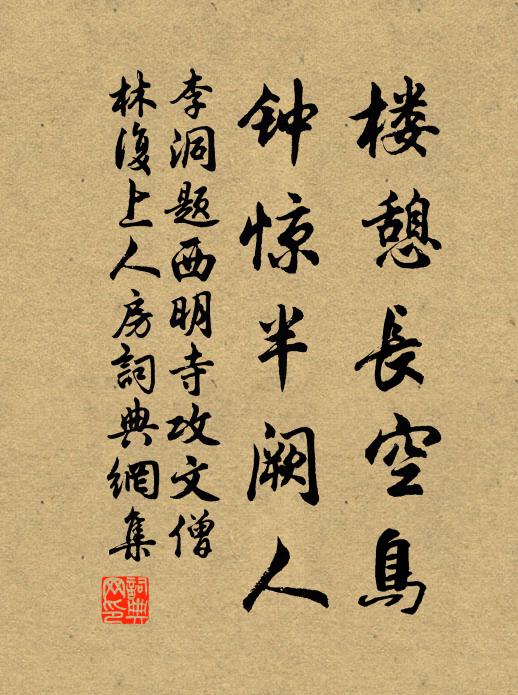 楼憩長空鳥
钟惊半阙人
李洞题西明寺攻文僧
林復上人房詞典網集
詞典
网印